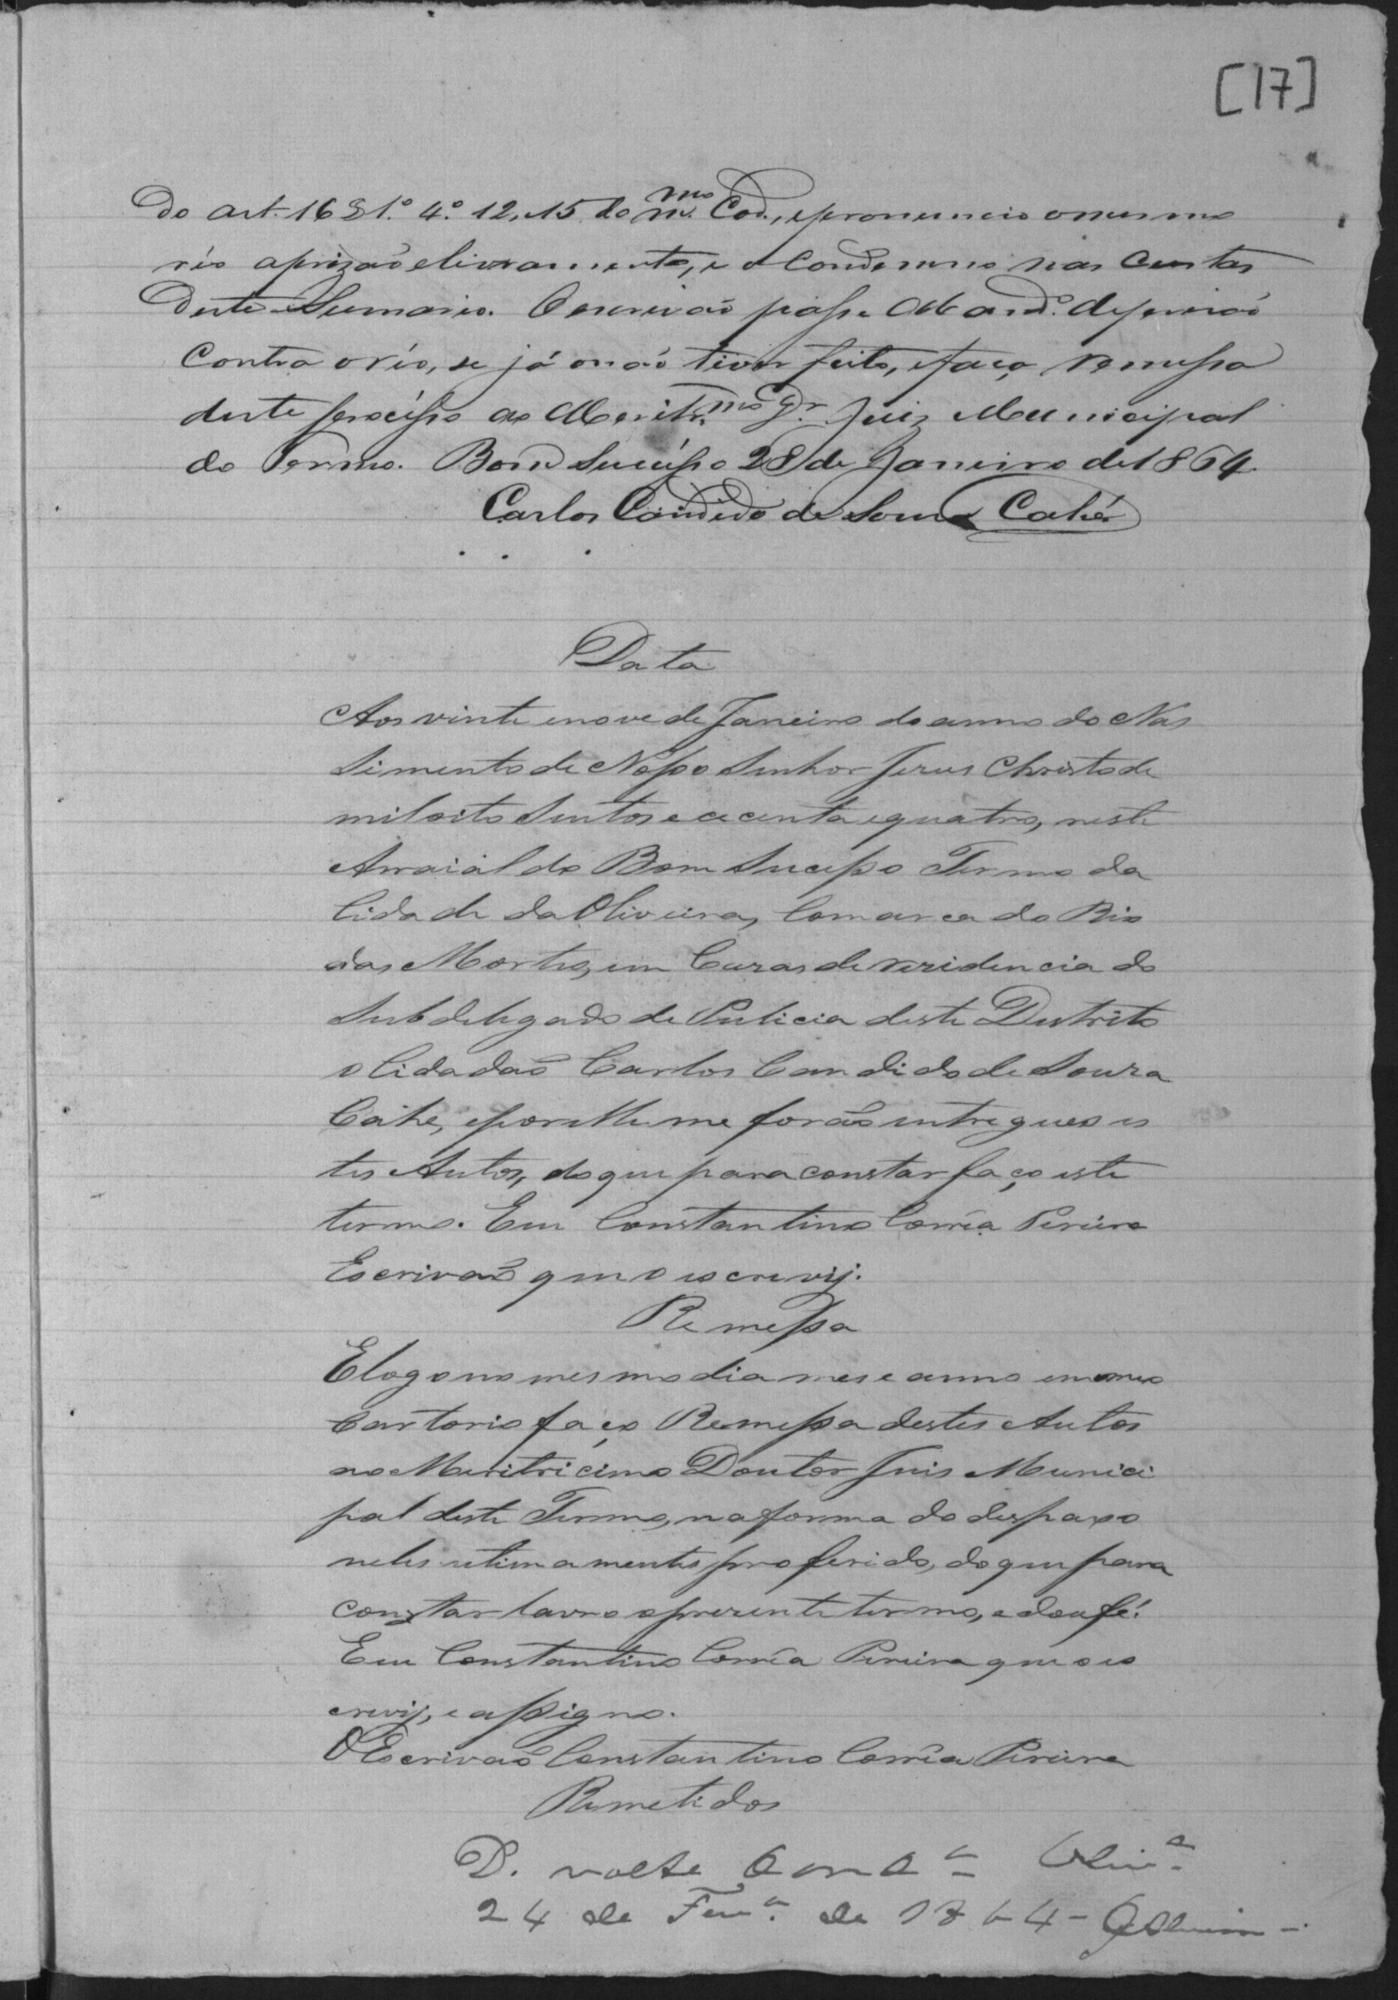 [17]
do art. 16 § 1º 4º 12, 15 do mmo Cod., e pronuncio o mesmo
réo a prizão e livramento, e o Condemno nas Custas
deste Sumario. O escrivão passe Mand.º de prizão
contra o réo, se já o não tiver feito, e faça remessa
deste procésso ao Meritr.mo Dr. Juiz Municipal
do Termo. Bom Sucésso 28 de Janeiro de 1864.
Carlos Candido de Souza Cahé
Data
Aos vinte e nove de Janeiro do anno do Nas
Simento de Nosso Senhor Jezus Christo de
mil oito Sentos e cecenta e quatro, neste
Arraial do Bom Sucesso Termo da
Cidade da Oliveira, Comarca do Rio
das Mortes, em Cazas de rezidencia do
Subdelegado de Pulicia deste Destrito
o Cidadão Carlos Candido de Souza
Cahe, e por elle me forão entregues es
tes Autos, do que para constar faço este
termo. Eu Constantino Corrêa Pereira
Escrivão que o escrevij.
Remessa
E logo no mesmo dia mes e anno em meo
Cartorio faço Remessa destes Autos
ao Meritricimo Doutor Juis Munici
pal deste Termo, na forma do despaxo
neles ultimamente proferido, do que para
constar lavro o prezente termo, e dou fé.
Eu Constantino Corrêa Pereira que o es
crevij, e assigno.
O Escrivão Constantino Corrêa Pereira
Remetidos
D. volte Olivª
24 de Fevº. de 1864-